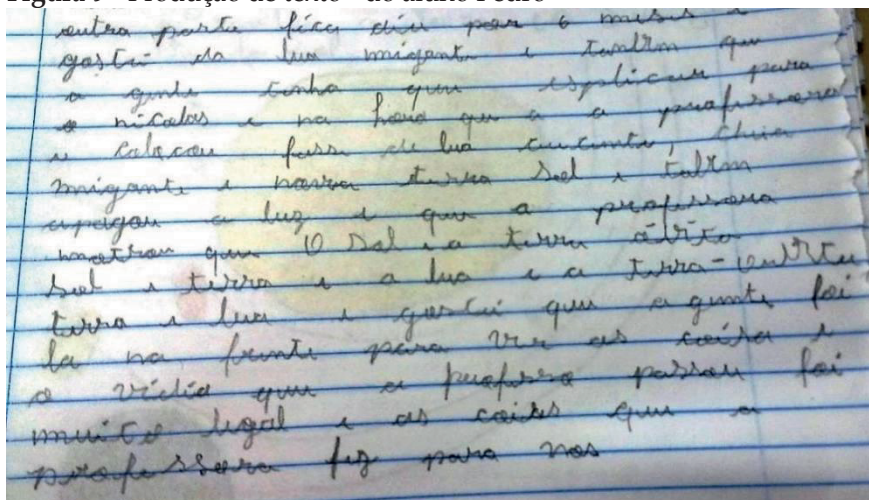 outra parte fica diu por 6 mesis
gostei da lua migante e tanlm que
a gente tenha que esplicar para
o nicolas e na hora que a a professora
e colocou fassi de lua crecente, cheia
migante e nova terra sol e talrm
apagou a luz e que a professora
mostrou que O sol e a terra
sol e terra e a lua e a terra-
terra e lua e gostei que a gente foi
la na frente para ver as coisa e
o vidio que a professo passou foi
muito legal e as coises que a
professora fez para nos